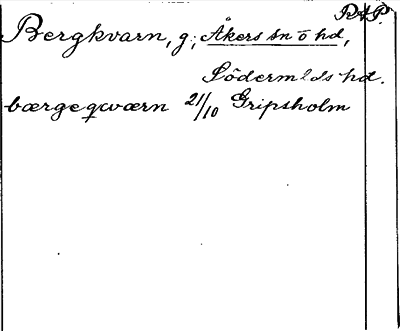 RAP.
Bergkvarn, g; Åkers sn o hd,
Södermlds hd.
bærgeqwærn 21/10 Gripsholm